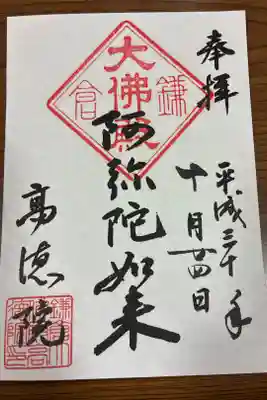 奉拝
平成三十年
十月廿四日
鎌倉
大佛殿
阿弥陀如来
高徳院